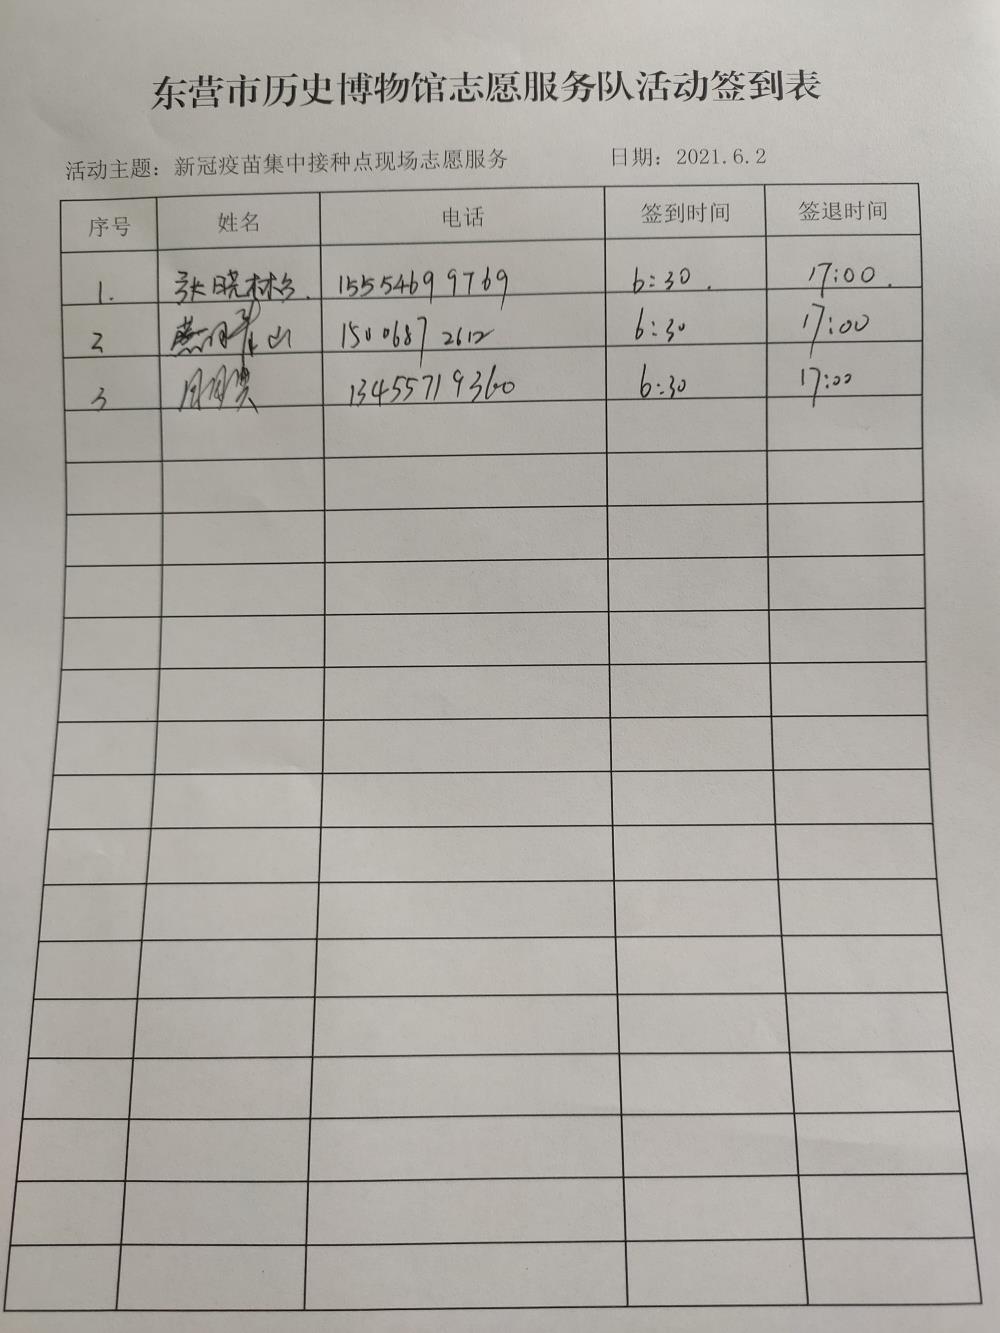 东营市历史博物馆志愿服务队活动签到表
活动主题：新冠疫苗集中接种点现场志愿服务 日期：2021.6.2
序号 姓名 电话 签到时间 签退时间
1. 张晓林 15554699769 6:30. 17:00.
2 山 15006872612 6:30 17:00
3 13455719360 6:30 17:00